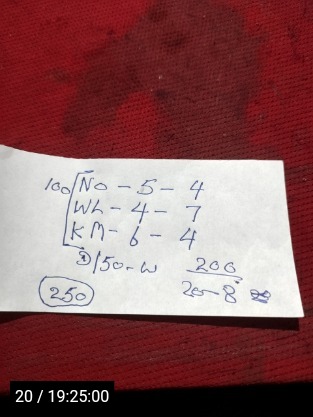 100 No - 5 - 4
WL - 4 - 7
KM - 6 - 4
150 - W 200
250 20 - 8
20 / 19:25:00